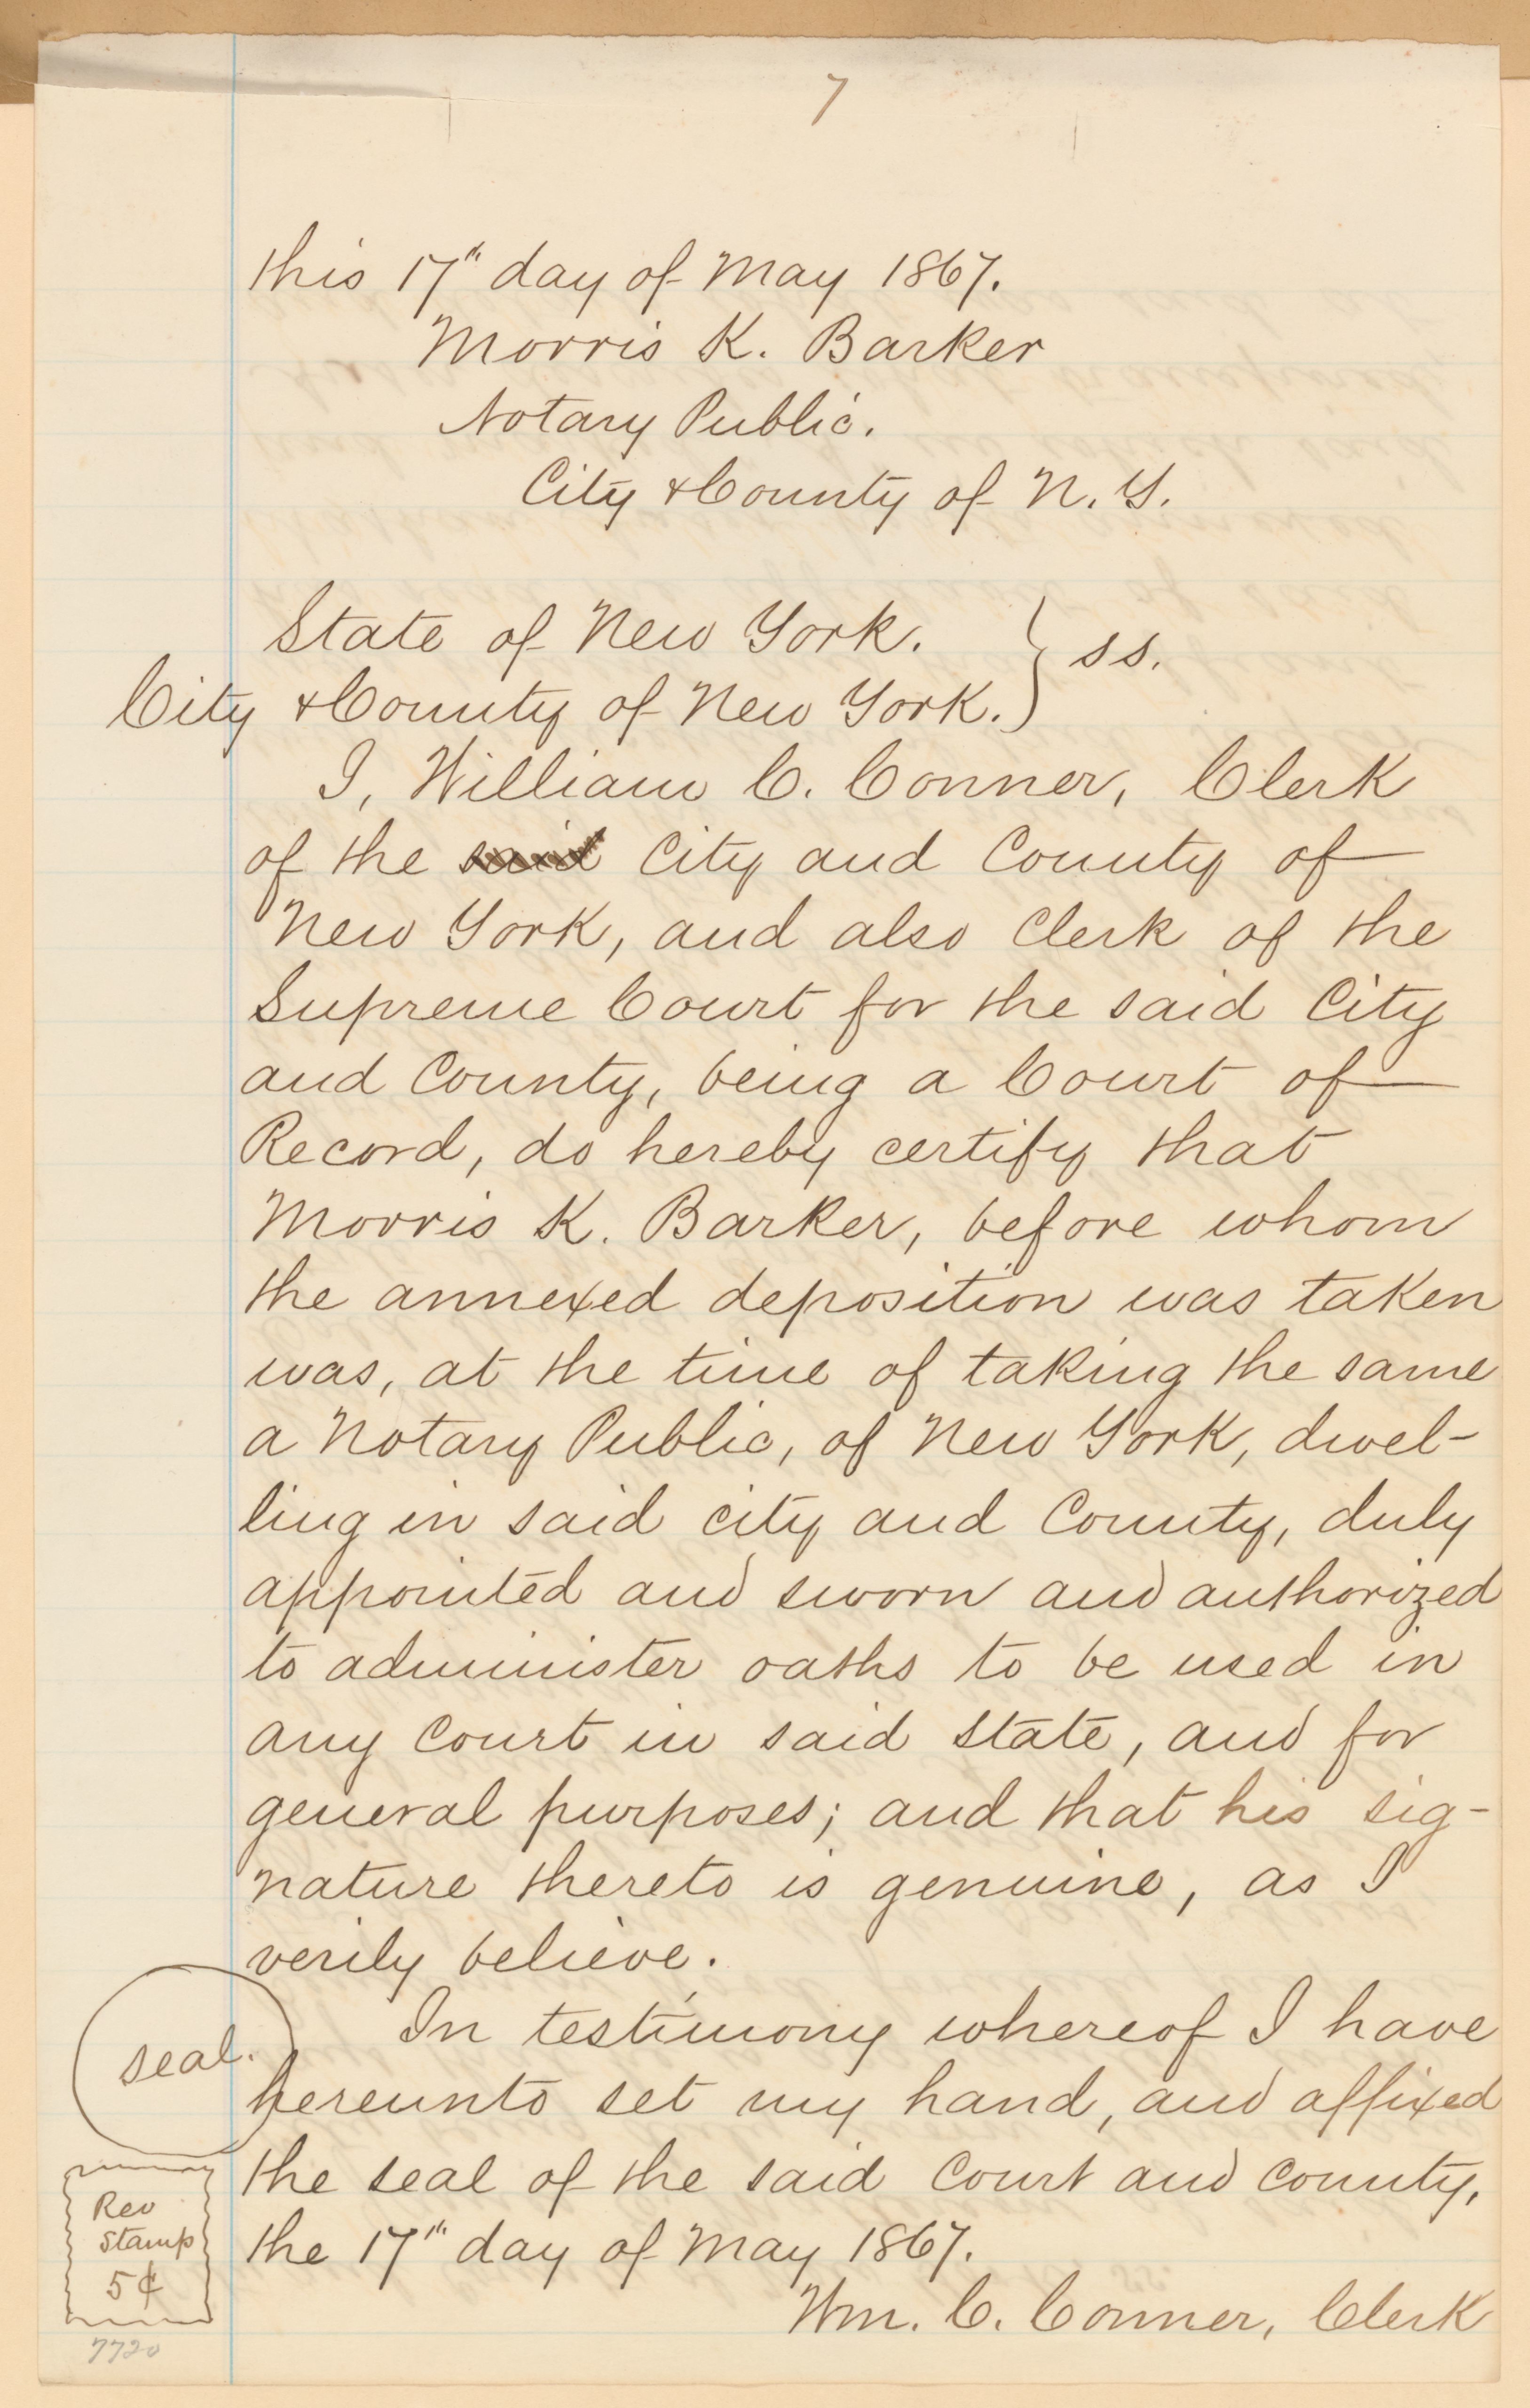 7
this 17" day of May 1867.
Morris K. Barker
Notary Public.
City & County of N. Y.
State of New York. } ss.
City & County of New York. }
I, William C. Conner, Clerk
of the said City and County of
New York, and also Clerk of the
Supreme Court for the said City
and County, being a Court of
Record, do hereby certify that
Morris K. Barker, before whom
the annexed deposition was taken
was, at the time of taking the same
a Notary Public, of New York, dwel-
ling in said city and County, duly
appointed and sworn and authorized
to administer oaths to be used in
any Court in said State, and for
general purposes; and that his sig-
nature thereto is genuine, as I
verily believe.
In testimony whereof I have
hereunto set my hand, and affixed
the seal of the said Court and County,
the 17th day of May 1867.
Wm. C. Conner, Clerk
seal.
Rev
Stamp
5¢
7720